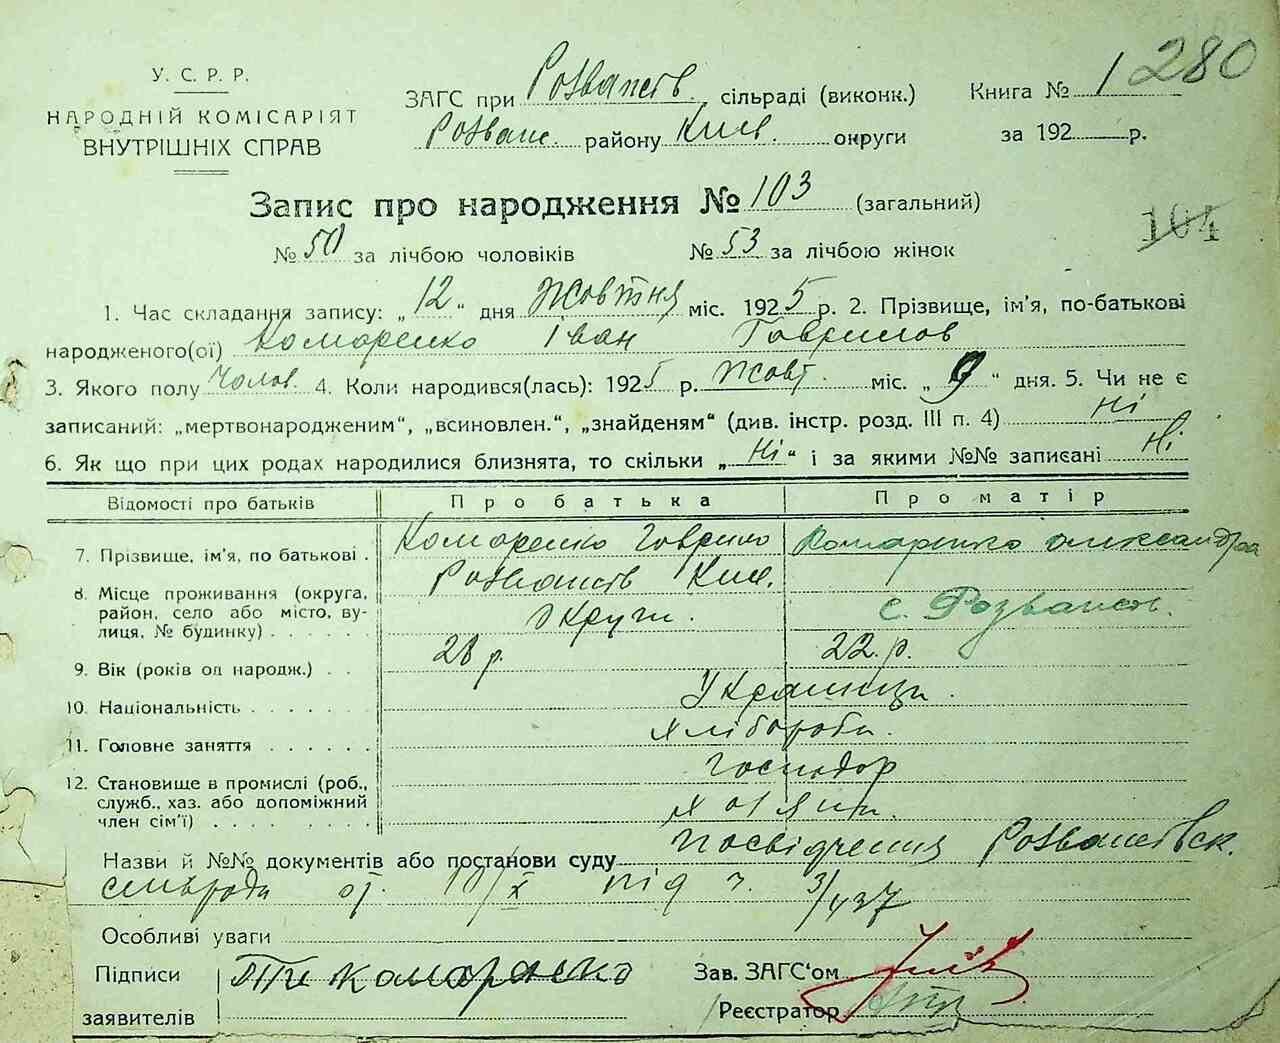 280
У. С. Р. Р.
НАРОДНІЙ КОМІСАРІЯТ
ВНУТРІШНІХ СПРАВ
ЗАГС при Розважів. сільраді (виконк.)
Розваж. району Київ. округи
Книга № 1
за 192 р.
Запис про народження № 103 (загальний)
104
№ 50 за лічбою чоловіків № 53 за лічбою жінок
1. Час складання запису: „12“ дня Жовтня міс. 1925 р. 2. Прізвище, ім'я, по-батькові
народженого(ої) Комаренко Іван Гаврилов
3. Якого полу Чолов. 4. Коли народився(лась): 1925 р. Жовт. міс. „9“ дня. 5. Чи не є
записаний: „мертвонародженим“, „всиновлен.“, „знайденям“ (див. інстр. розд. III п. 4) Ні
6. Як що при цих родах народилися близнята, то скільки „Ні“ і за якими №№ записані Ні
Відомості про батьків Про батька Про матір
7. Прізвище, ім'я, по батькові . Комаренко Гаврило Комаренко Олександра
8. Місце проживання (округа,
район, село або місто, ву-
лиця, № будинку) . . . . .
Розважів Киів.
Округи.
с. Розважів.
9. Вік (років од народж.) . . 28 р. 22. р.
10. Національність . . . . . Українці.
11. Головне заняття . . . . . . Хлібороби.
12. Становище в промислі (роб.,
служб., хаз. або допоміжний
член сім'ї) . . . . . . . .
Господар
Назви й №№ документів або постанови суду Посвідчення Розважівськ.
сільради від 10/X під ч. 3/437
Особливі уваги
Підписи
заявителів
Комаренко
Зав. ЗАГС'ом
Реєстратор